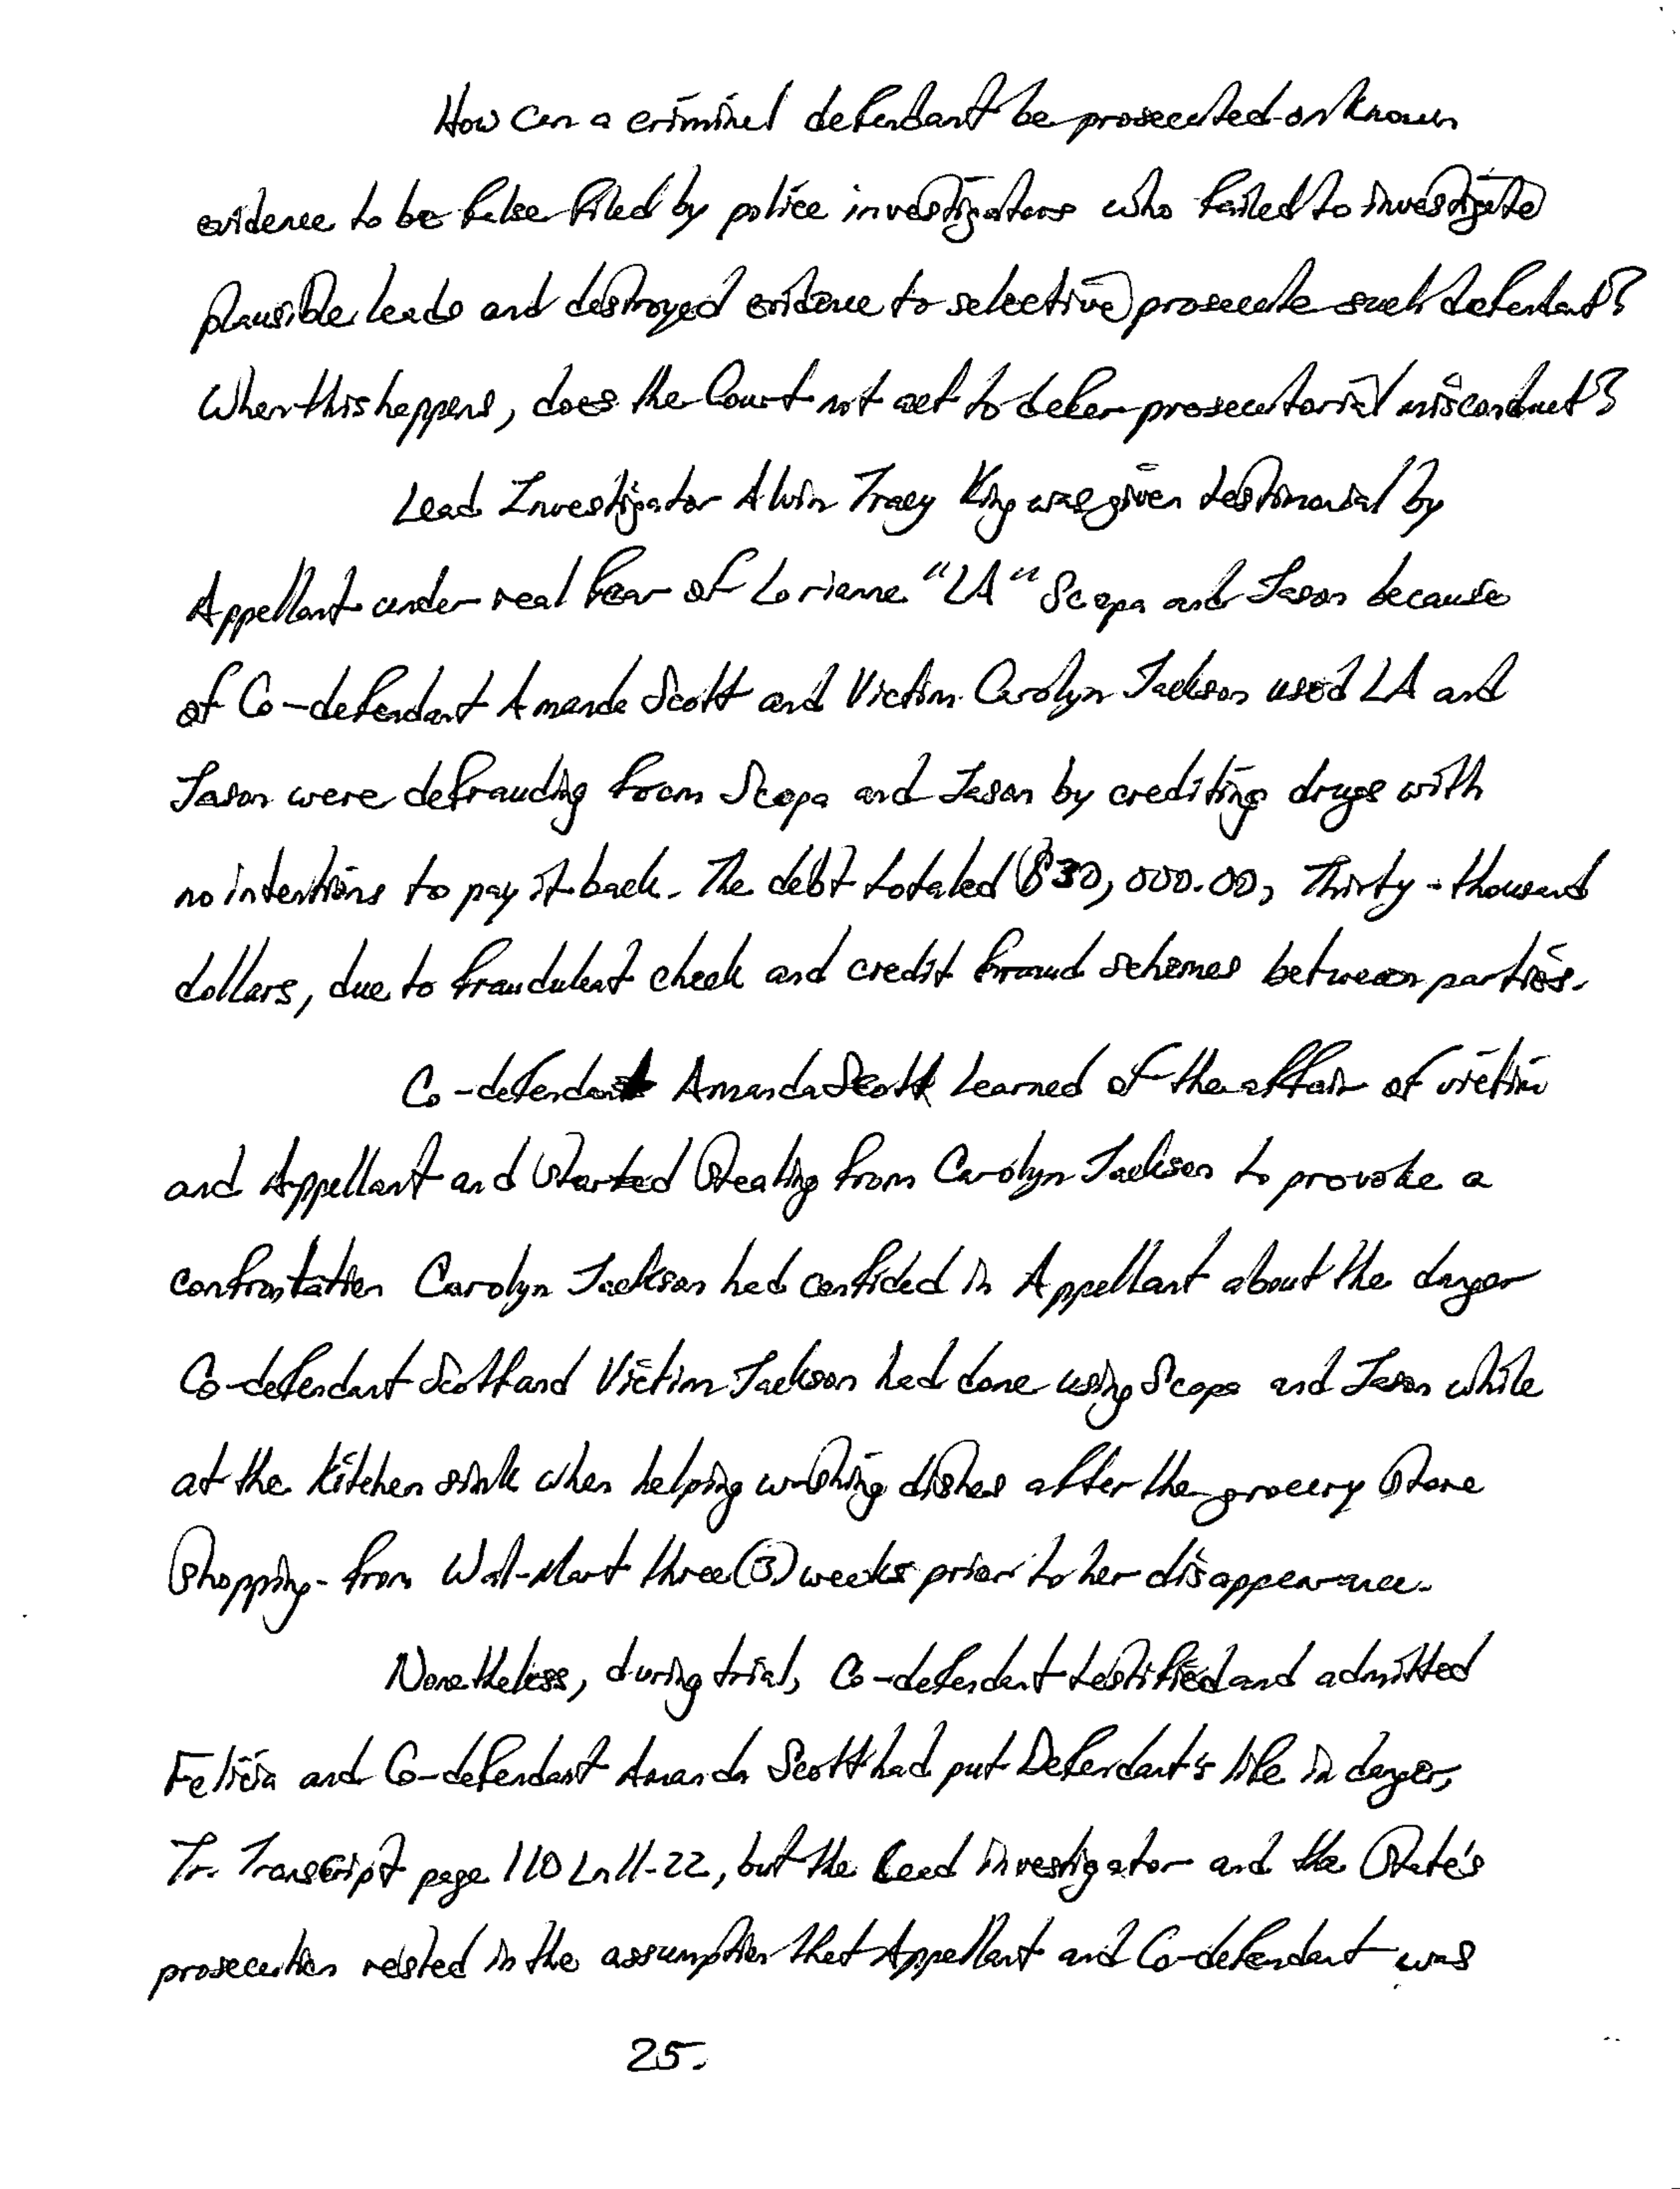 How can a criminal defendant be prosecuted on known
evidence to be false filed by police investigators who failed to investigate
plausible leads and destroyed evidence to selective prosecute such defendant?
When this happens, does the Court not act to deter prosecutorial misconduct?
Lead Investigator Alvin Tracy King was given testimonial by
Appellant under real fear of Lorianne "LA" Scopa and Jason because
of Co-defendant Amanda Scott and Victim Carolyn Jackson used LA and
Jason were defrauding from Scopa and Jason by crediting drugs with
no intentions to pay it back. The debt totaled $30,000.00, Thirty-thousand
dollars, due to fraudulent check and credit fraud schemes between parties.
Co-defendant Amanda Scott learned of the affair of victim
and Appellant and started stealing from Carolyn Jackson to provoke a
confrontation Carolyn Jackson had confided in Appellant about the danger
Co-defendant Scott and Victim Jackson had done using Scopa and Jason while
at the kitchen sink when helping washing dishes after the grocery store
shopping from Wal-Mart three (3) weeks prior to her disappearance.
Nonetheless, during trial, Co-defendant testified and admitted
Felicia and Co-defendant Amanda Scott had put Defendant's life in danger,
Tr. Transcript page 110 Ln 11-22, but the lead investigator and the State's
prosecution rested in the assumption that Appellant and Co-defendant was
25.